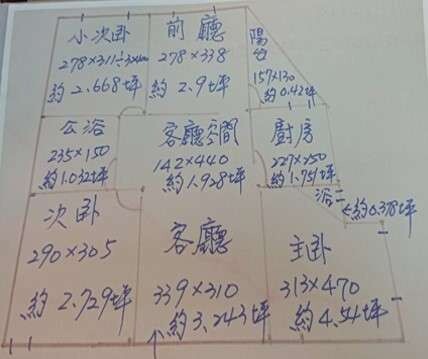 小次卧
278×311÷3×100
約2.668坪
前廳
278×338
約2.9坪
陽台
157×130
約0.42坪
公浴
235×150
約1.032坪
客廳空間
142×440
約1.928坪
廚房
227×250
約1.751坪
浴二
約0.378坪
次卧
290×305
約2.729坪
客廳
339×310
約3.243坪
主卧
313×470
約4.54坪